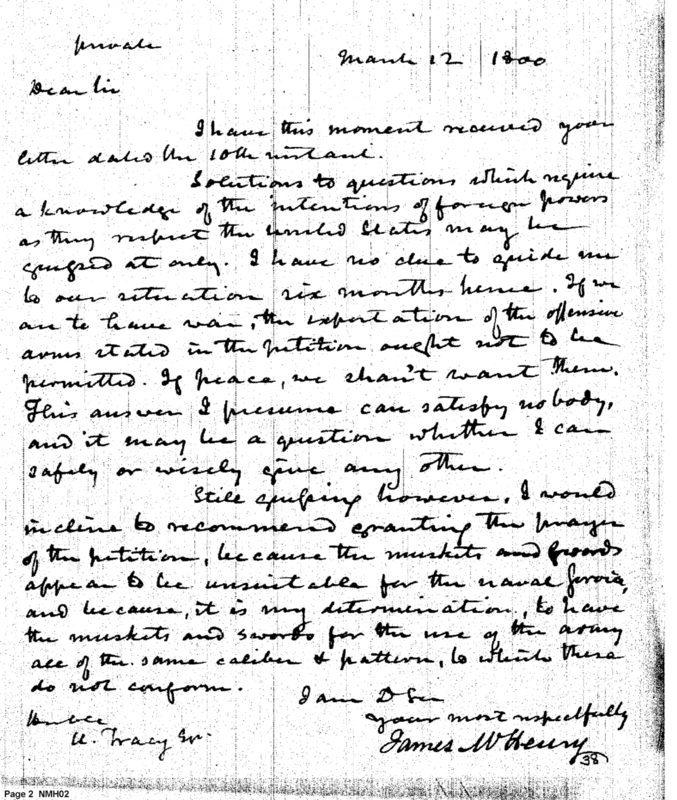 private
March 12 1800
Dear Sir
I have this moment received your
letter dated the 10th instant.
Solutions to questions which require
a knowledge of the intentions of foreign powers
as they respect the United States may be
guessed at only. I have no clue to guide me
to our situation six months hence. If we
are to have war, the exportation of the offensive
arms stated in the petition ought not to be
permitted. If peace, we shan't want them.
This answer I presume can satisfy nobody,
and it may be a question whether I can
safely or wisely give any other.
Still guessing however, I would
incline to recommend granting the prayer
of the petition, because the muskets and swords
appear to be unsuitable for the naval service,
and because, it is my determination, to have
the muskets and swords for the use of the army
all of the same caliber & pattern, to which these
do not conform.
I am D Sir
your most respectfully
James McHenry
Honble
U. Tracy Esr.
38
Page 2 NMH02